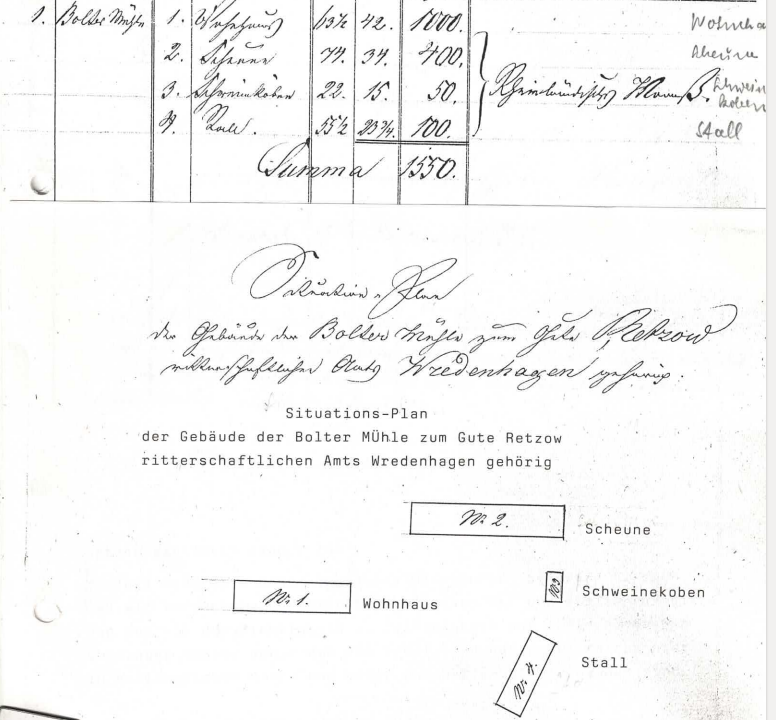 1. Bolter Mühle 1. Wohnhaus 63½ 42. 1000. Wohnha
2. Scheune 74. 34. 400. Scheune
3. Schweinkoben 22. 15. 50. Rheinländisches Maaß. Schwein
koben
4. Stall. 55½ 23¾. 100. Stall
Summa 1550.
Situations-Plan
der Gebäude der Bolter Mühle zum Gute Retzow
ritterschaftlichen Amts Wredenhagen gehörig.
Situations-Plan
der Gebäude der Bolter MÜhle zum Gute Retzow
ritterschaftlichen Amts Wredenhagen gehörig
№ 2.
Scheune
№ 3
Schweinekoben
№ 1.
Wohnhaus
№ 4.
Stall